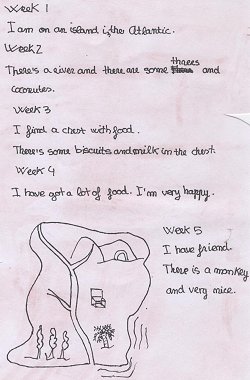 Week 1
I am on an island in the Atlantic.
Week 2
There's a river and there are some threes and
coconutes.
Week 3
I find a chest with food.
There's some biscuits and milk in the chest.
Week 4
I have got a lot of food. I'm very happy.
Week 5
I have friend.
There is a monkey
and very nice.